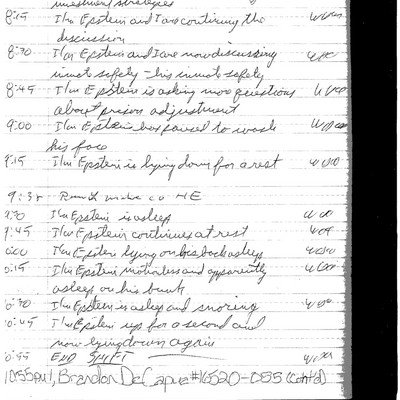 investment strategies
8:15 I/m Epstein and I are continuing the
discussion
8:30 I/m Epstein and I are now discussing
inmate safety - his inmate safety
8:45 I/m Epstein is asking more questions
about prison adjustment
9:00 I/m Epstein has paused to wash
his face
9:15 I/m Epstein is lying down for a rest
9:30
9:30 I/m Epstein is asleep
9:45 I/m Epstein continues at rest
10:00 I/m Epstein lying on his back asleep
10:15 I/m Epstein motionless and apparently
asleep on his bunk
10:30 I/m Epstein is asleep and snoring
10:45 I/m Epstein up for a second and
now lying down again
10:55 END SHIFT
10:55pm, Brandon DeCapua #16520-055 (cont'd)